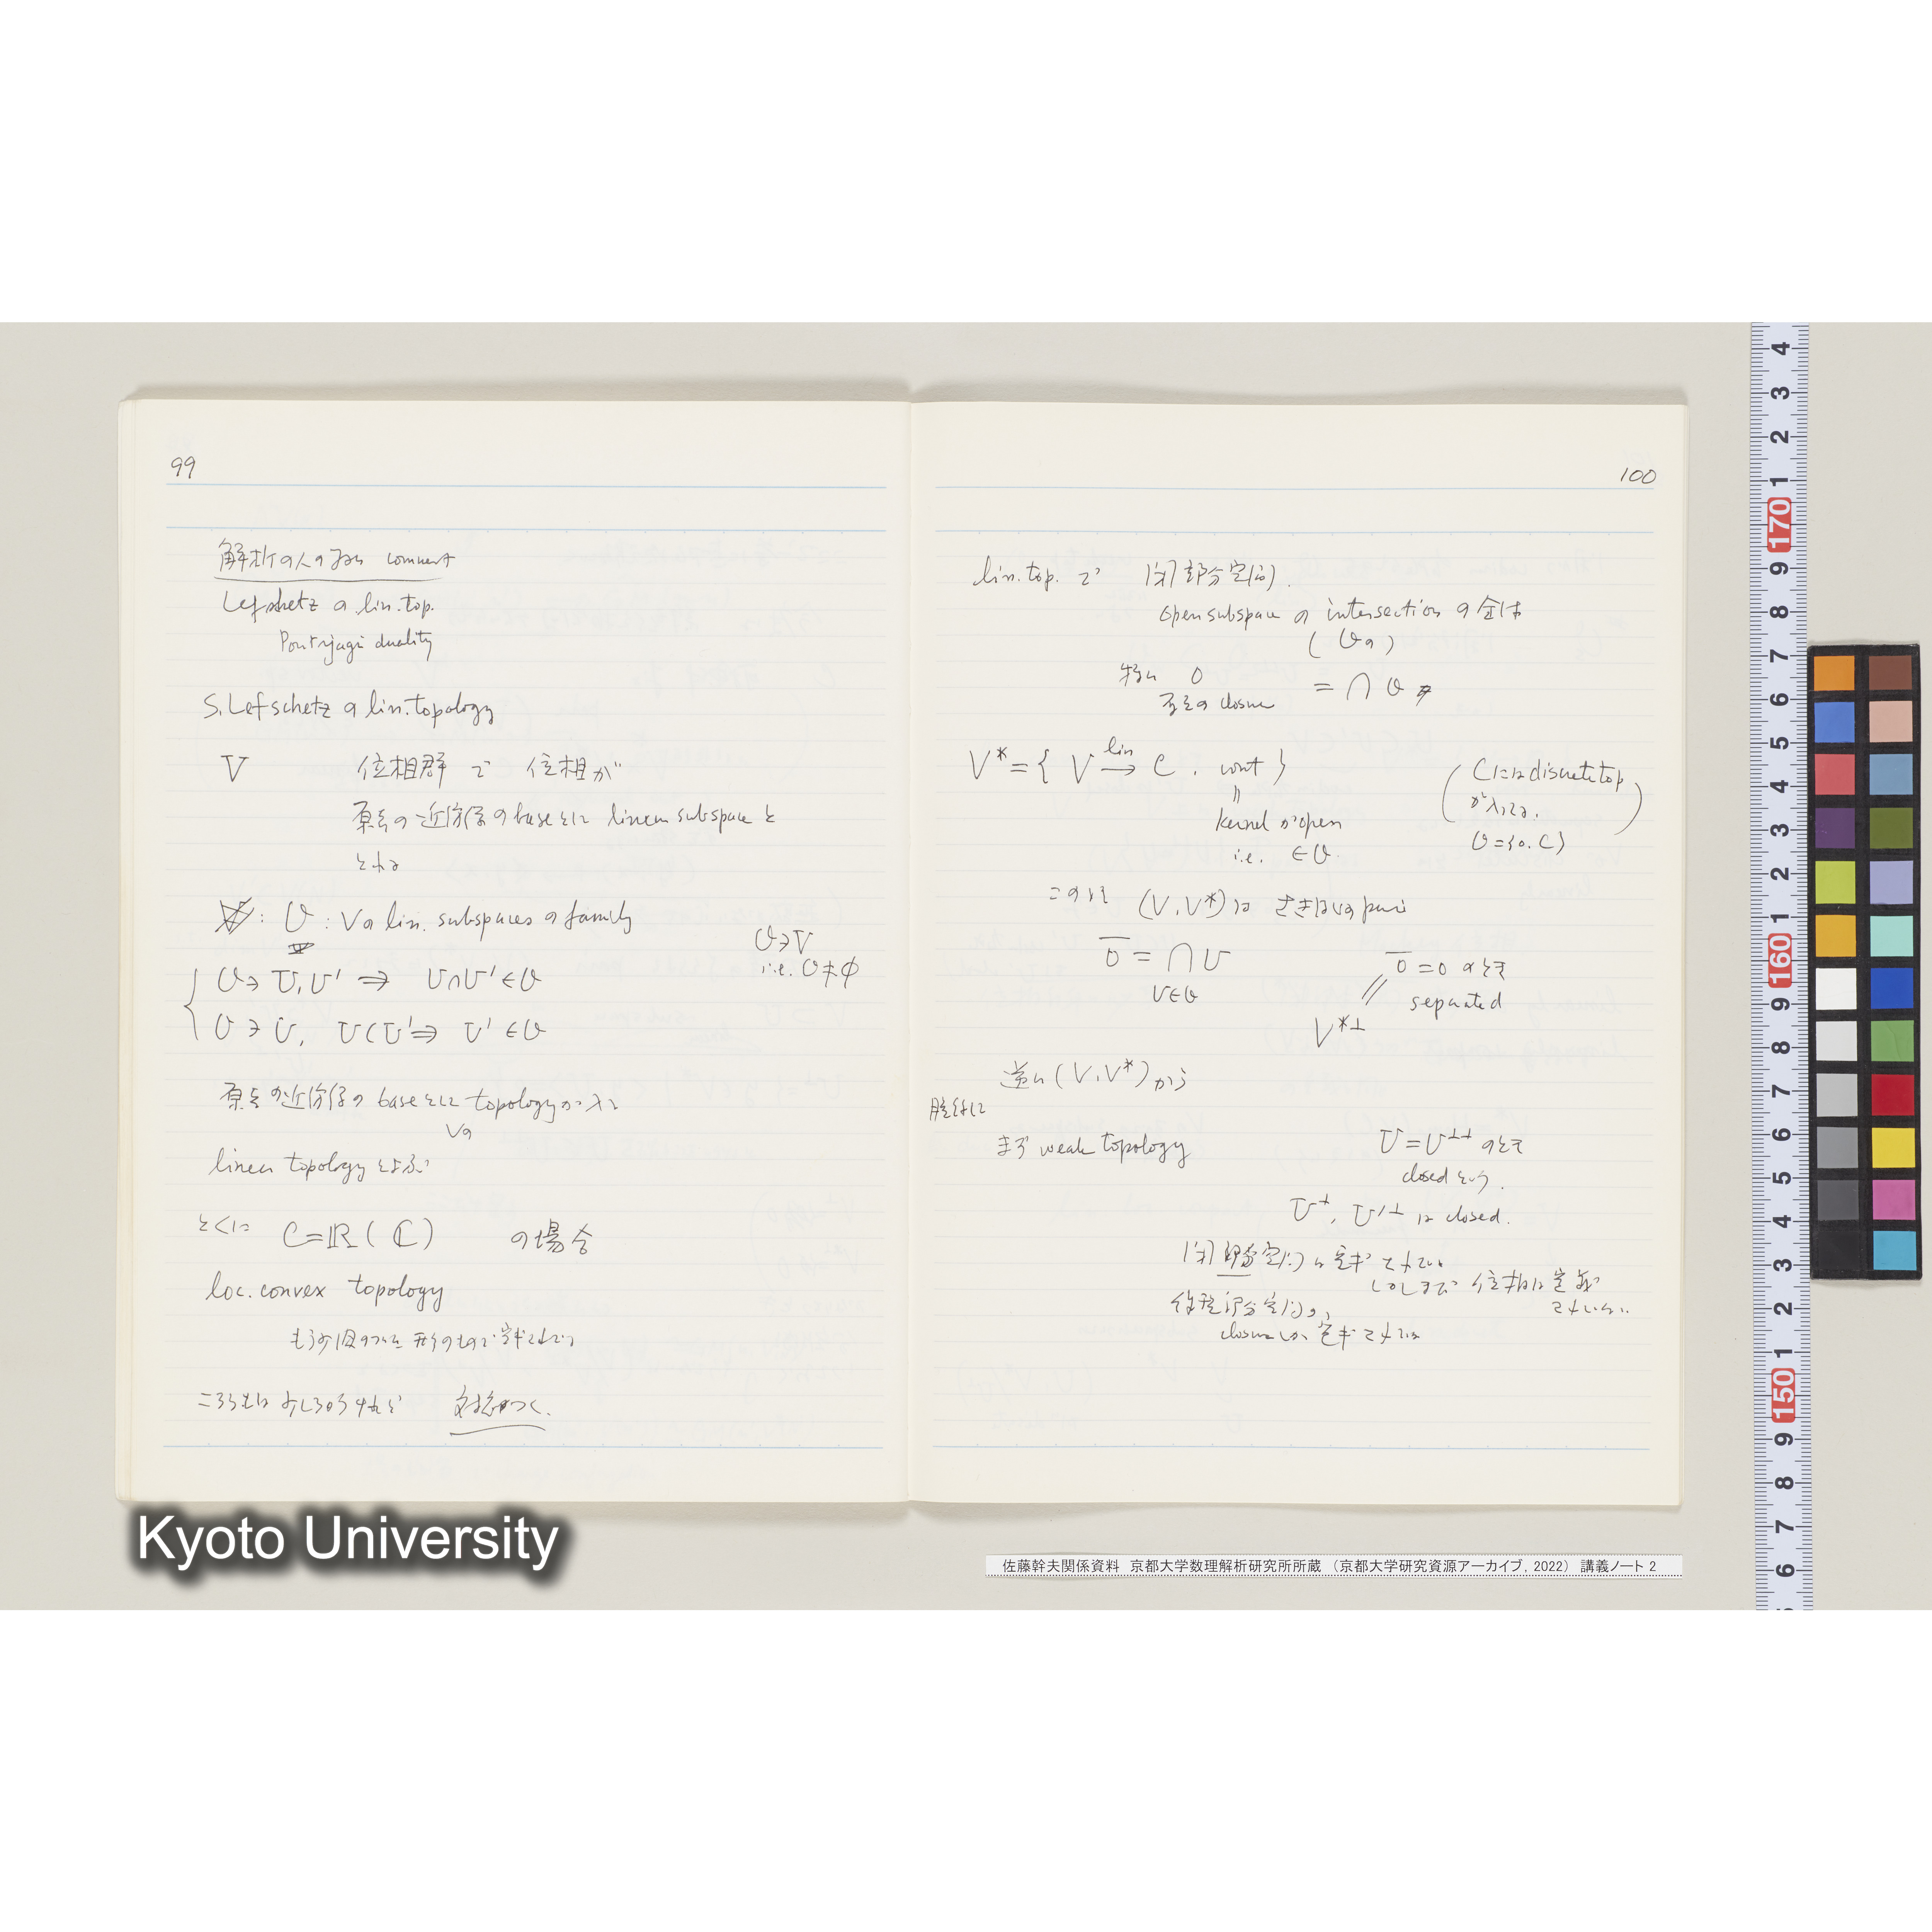 99
解析の人のために comment
Lefshetz の lin. top.
Pontrjagi duality
S. Lefschetz の lin. topology
V 位相群で 位相が
原点の近傍系の base として linear subspace と
とれる
V : V の lin. subspaces の family
V∋V
i.e. V≠φ
V∋U, U' ⇒ U∩U'∈V
V∋U, U⊂U' ⇒ U'∈V
原点の近傍系の base として topology が入る
Vの
linear topology とよぶ
とくに C=ℝ (ℂ) の場合
loc. convex topology
もう少し
対応がつく.
100
lin. top. で 閉部分空間.
open subspace の intersection の全体
(Vの)
特に 0
= ∩ V
の closure
V* = { V lin→ C, cont }
kernel が open
i.e. ∈V.
( Cには discrete top
が入ってる.
V={0, C} )
このとき (V, V*) は の pair
0̄ = ∩ U
U∈V
0̄ = 0 のとき
separated
V*⊥
逆に (V, V*) から
まず weak topology
U = U⊥⊥ のとき
closed という.
U⊥, U'⊥ は closed.
閉部分空間は定義できている
しかしまだ 位相は定義
できていない
線形部分空間の
closure しか定義できてない
Kyoto University
佐藤幹夫関係資料 京都大学数理解析研究所所蔵 (京都大学研究資源アーカイブ, 2022) 講義ノート 2
4
3
2
1
170
9
8
7
6
5
4
3
2
1
160
9
8
7
6
5
4
3
2
1
150
9
8
7
6